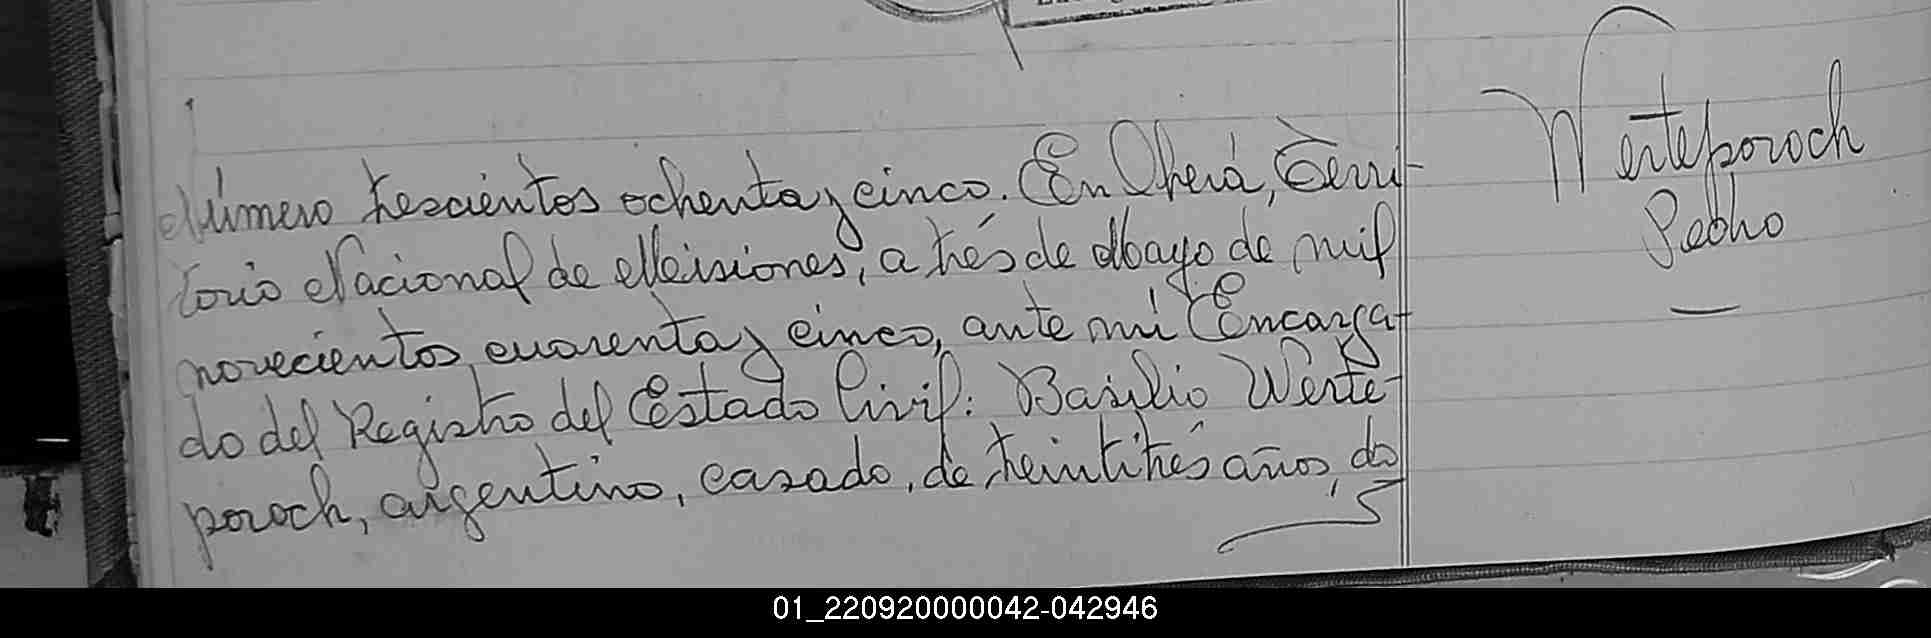 Número trescientos ochenta y cinco. En Oberá, Terri-
torio Nacional de Misiones, a trés de Mayo de mil
novecientos cuarenta y cinco, ante mi Encarga-
do del Registro del Estado Civil: Basilio Werte-
poroch, argentino, casado, de treintitrés años, do
Werteporoch
Pedro
01_220920000042-042946